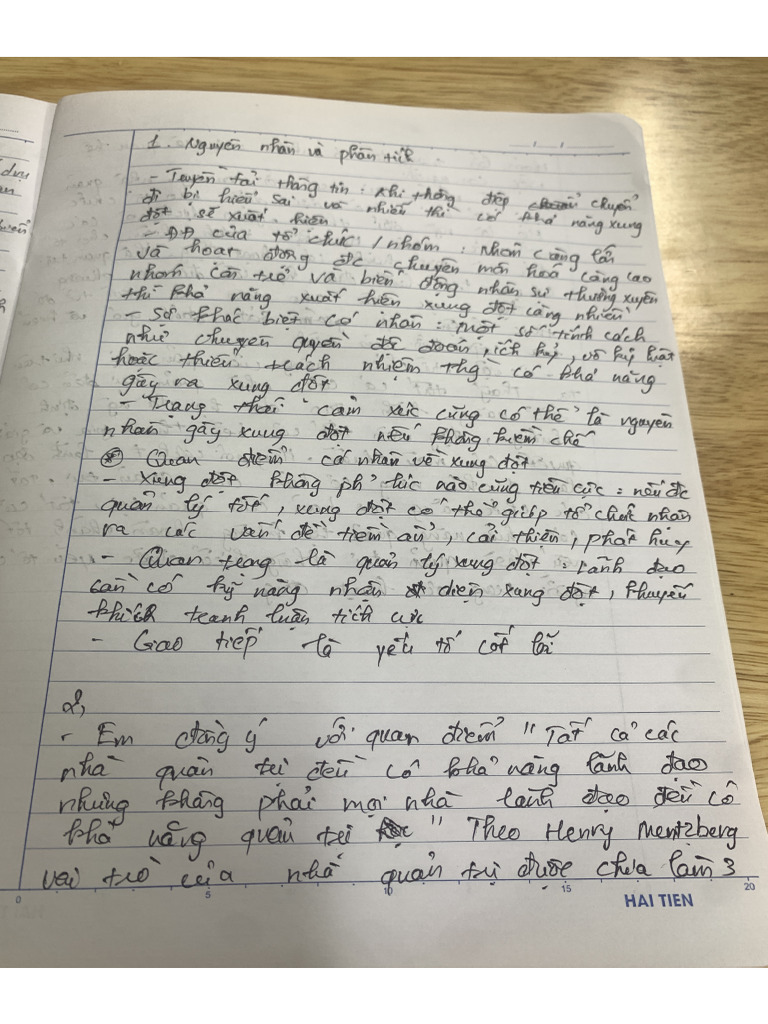 1. Nguyên nhân và phân tích
- Truyền tải thông tin : khi thông điệp chuyển
đi bị hiểu sai vô nhiễu thì có khả năng xung
đột sẽ xuất hiện
- ĐĐ của tổ chức / nhóm : nhóm càng lớn
và hoạt động đc chuyên môn hoá càng cao
nhóm còn trẻ và biến động nhân sự thường xuyên
thì khả năng xuất hiện xung đột càng nhiều
- Sự khác biệt cá nhân : một số tính cách
như chuyên quyền độc đoán, ích kỷ, vô kỷ luật
hoặc thiếu trách nhiệm thg có khả năng
gây ra xung đột
- Trạng thái cảm xúc cũng có thể là nguyên
nhân gây xung đột nếu không kiềm chế
* Quan điểm cá nhân về xung đột
- Xung đột không ph' lúc nào cũng tiêu cực : nếu đc
quản lý tốt, xung đột có thể giúp tổ chức nhận
ra các vấn đề tiềm ẩn, cải thiện, phát huy
- Quan trọng là quản lý xung đột : Lãnh đạo
cần có kỹ năng nhận diện xung đột, khuyến
khích tranh luận tích cực
- Giao tiếp là yếu tố cốt lõi
2,
- Em đồng ý với quan điểm " Tất cả các
nhà quản trị đều có khả năng lãnh đạo
nhưng không phải mọi nhà lãnh đạo đều có
khả năng quản trị " Theo Henry Mentzberg
vai trò của nhà quản trị được chia làm 3
0 5 10 15 20
HAI TIEN